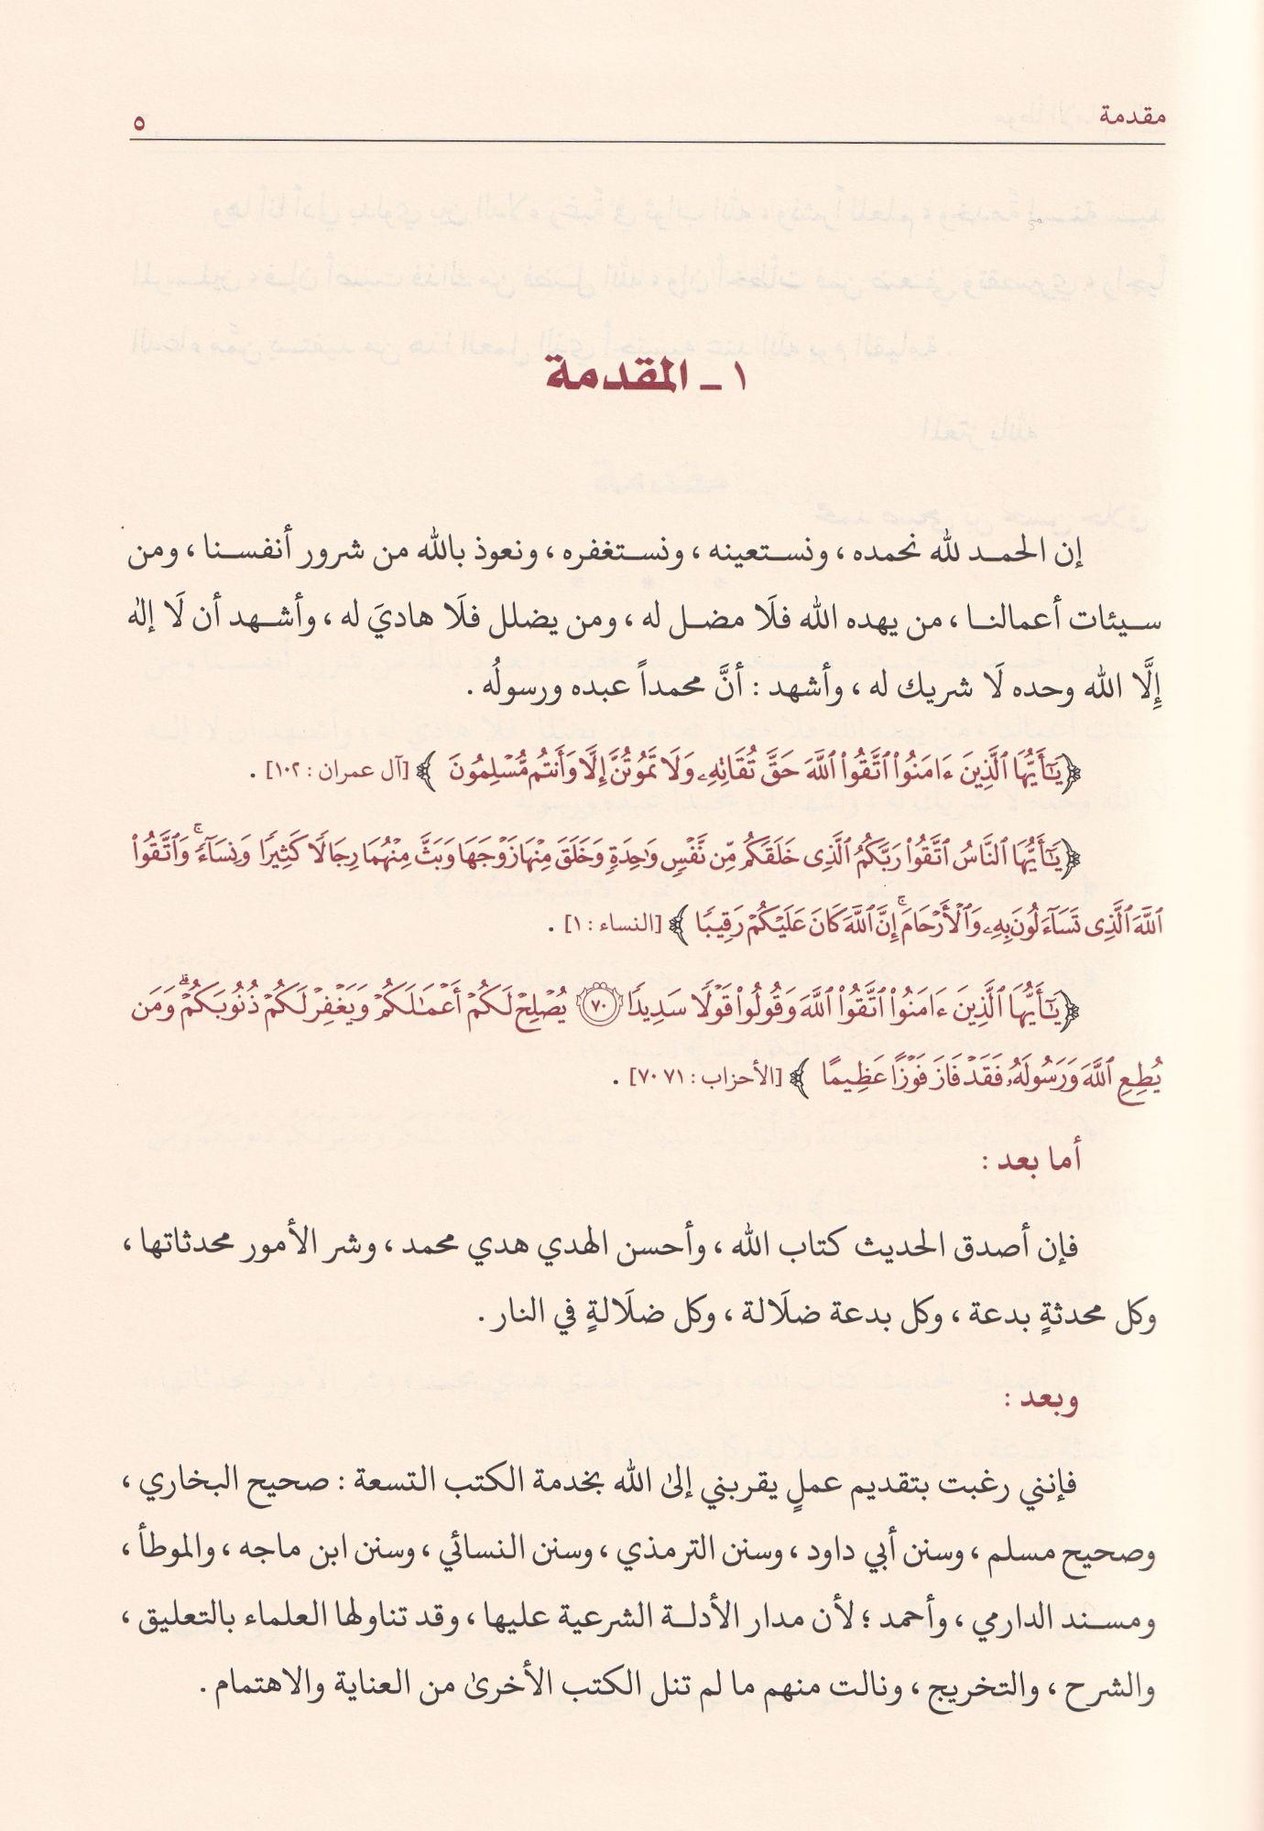 مقدمة
٥
١ ـ المقدمة
إن الحمـد لله نحمده ، ونسـتعينه ، ونسـتغفره ، ونعوذ بالله من شرور أنفسـنا ، ومن
سـيئات أعمالنـا ، من يهده الله فلَا مضـل له ، ومن يضلل فلَا هاديَ له ، وأشـهد أن لَا إلٰه
إِلَّا الله وحده لَا شريك له ، وأشهد : أنَّ محمداً عبده ورسولُه .
﴿يَٰٓأَيُّهَا ٱلَّذِينَ ءَامَنُوا۟ ٱتَّقُوا۟ ٱللَّهَ حَقَّ تُقَاتِهِۦ وَلَا تَمُوتُنَّ إِلَّا وَأَنتُم مُّسْلِمُونَ ﴾ [آل عمران : ١٠٢] .
﴿يَٰٓأَيُّهَا ٱلنَّاسُ ٱتَّقُوا۟ رَبَّكُمُ ٱلَّذِى خَلَقَكُم مِّن نَّفْسٍ وَٰحِدَةٍ وَخَلَقَ مِنْهَا زَوْجَهَا وَبَثَّ مِنْهُمَا رِجَالًا كَثِيرًا وَنِسَآءً ۚ وَٱتَّقُوا۟
ٱللَّهَ ٱلَّذِى تَسَآءَلُونَ بِهِۦ وَٱلْأَرْحَامَ ۚ إِنَّ ٱللَّهَ كَانَ عَلَيْكُمْ رَقِيبًا ﴾ [النساء : ١] .
﴿يَٰٓأَيُّهَا ٱلَّذِينَ ءَامَنُوا۟ ٱتَّقُوا۟ ٱللَّهَ وَقُولُوا۟ قَوْلًا سَدِيدًا ٧٠ يُصْلِحْ لَكُمْ أَعْمَٰلَكُمْ وَيَغْفِرْ لَكُمْ ذُنُوبَكُمْ ۗ وَمَن
يُطِعِ ٱللَّهَ وَرَسُولَهُۥ فَقَدْ فَازَ فَوْزًا عَظِيمًا ﴾ [الأحزاب : ٧١ ٧٠] .
أما بعد :
فإن أصدق الحديث كتاب الله ، وأحسن الهدي هدي محمد ، وشر الأمور محدثاتها ،
وكل محدثةٍ بدعة ، وكل بدعة ضلَالة ، وكل ضلَالةٍ في النار .
وبعد :
فإنني رغبت بتقديم عملٍ يقربني إلىٰ الله بخدمة الكتب التسعة : صحيح البخاري ،
وصحيح مسلم ، وسنن أبي داود ، وسنن الترمذي ، وسنن النسائي ، وسنن ابن ماجه ، والموطأ ،
ومسـند الدارمي ، وأحمد ؛ لأن مدار الأدلـة الشرعية عليها ، وقد تناولها العلماء بالتعليق ،
والشرح ، والتخريج ، ونالت منهم ما لم تنل الكتب الأخرىٰ من العناية والاهتمام .